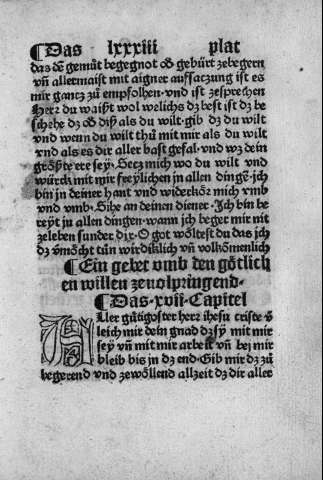 ¶Das lxxxiii plat
das dē gemüt begegnot oð gebürt zebegern
vñ allermaist mit aigner auffsaczung ist es
mir gantz zů empfolhen · vnd ist zesprechen
Herz du waißt wol welichs dz best ist dz be
schehe dz oð diß als du wilt · gib dz du wilt
vnd wenn du wilt thů mit mir als du wilt
vnd als es dir aller bast gefal · vnd wz dein
grőßte ere sey · Secz mich wo du wilt vnd
würck mit mir freylichen jn allen dingē · jch
bin jn deiner hant vnd widerkőre mich vmb
vnd vmb · Sihe an deinen diener · Jch bin be
reyt zu allen dingen · wann jch beger mir nit
zeleben sunder dir · O got wőltest du das jch
dz vmőcht tůn wirdiklich vñ volkőmenlich
¶Ein gebet vmb den gőtlich
en willen zeuolpringend ·
¶Das · xvii · Capitel
Aller gütigoster herz ihesu criste · v̈
leich mir dein gnad dz sy mit mir
sey vñ mit mir arbeit vñ bei mir
bleib bis jn dz end · Gib mir dz zů
begerend vnd zewőllend allzeit dz dir aller